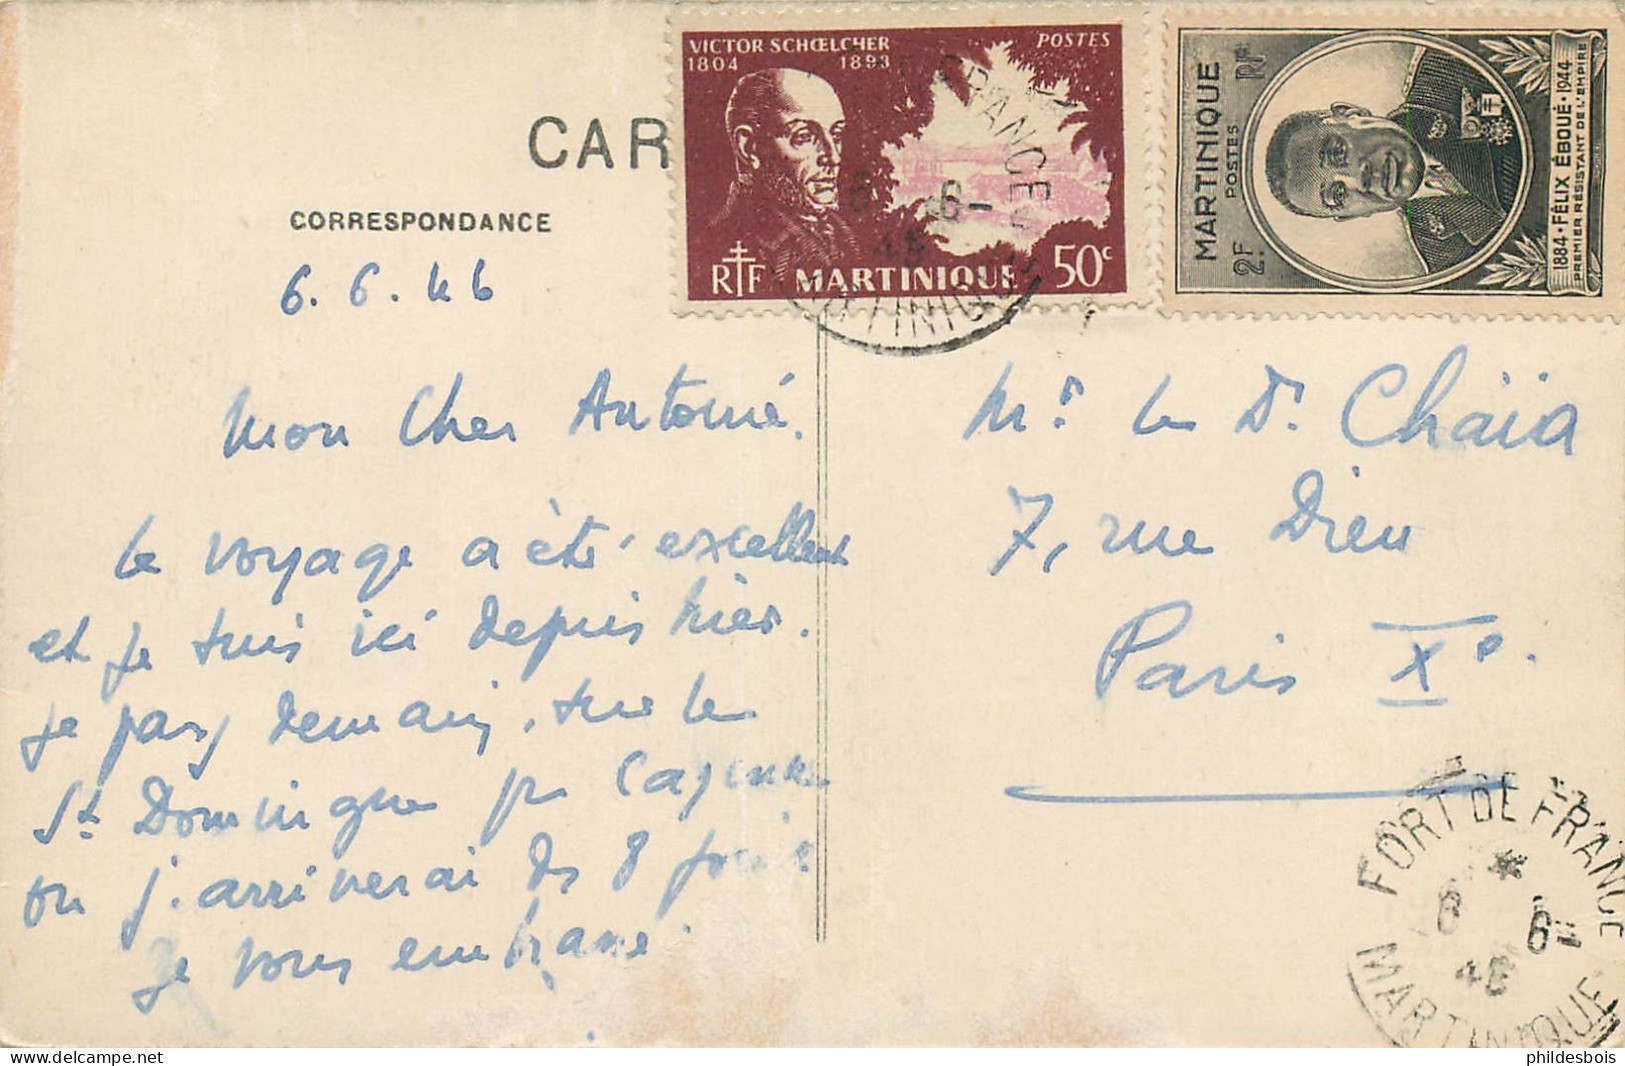 CAR
CORRESPONDANCE
6.6.46
Mon Cher Antoine.
Le voyage a été excellent
et je suis ici depuis hier.
Je pars demain, sur le
St Domingue pr Cayenne
où j'arriverai le 8 juin
je vous embrasse.
VICTOR SCHŒLCHER
1804 1893
POSTES
RF MARTINIQUE 50c
MARTINIQUE
POSTES
2F RF
1884 • FÉLIX ÉBOUÉ • 1944
PREMIER RÉSISTANT DE L'EMPIRE
FRANCE
6 -6-
46
MARTINIQUE
Mr. le Dr. Chaïa
7, rue Dieu
Paris Xe.
FORT DE FRANCE
6 6-
46
MARTINIQUE
phildesbois